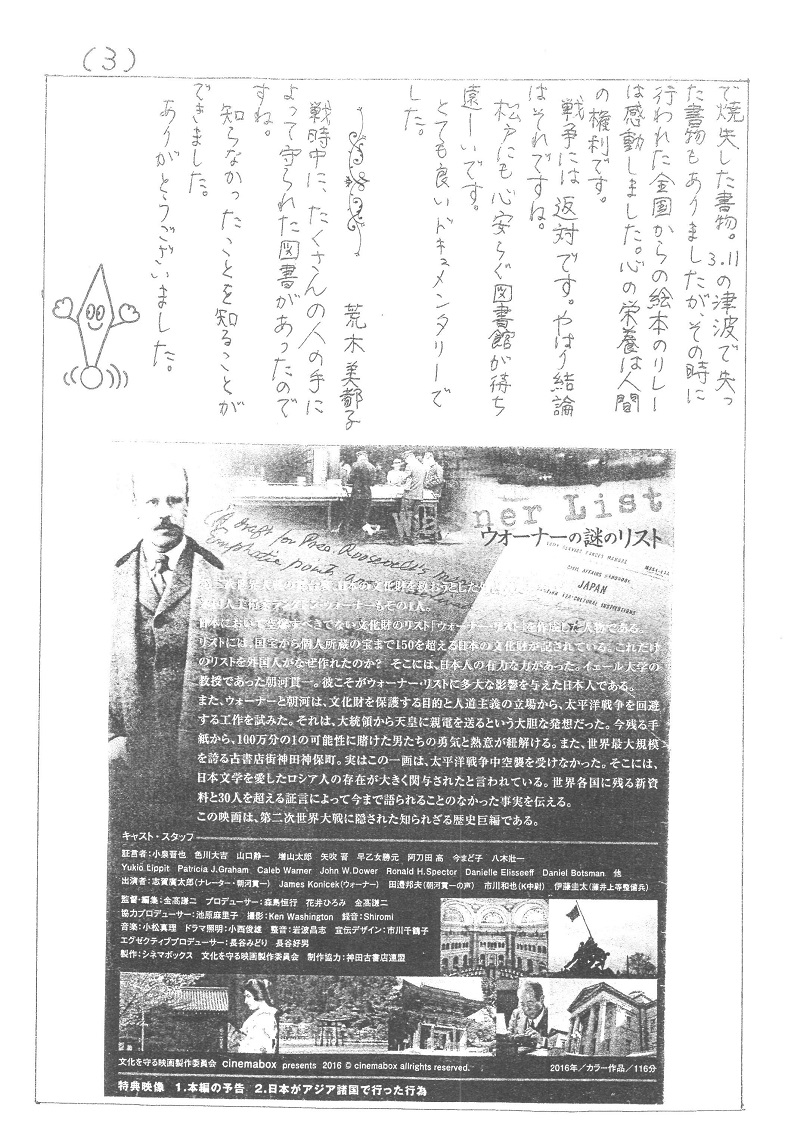 (3)
で焼失した書物。3.11の津波で失っ
た書物もありましたが、その時に
行われた全国からの絵本のリレー
は感動しました。心の栄養は人間
の権利です。
戦争には返対です。やはり結論
はそれですね。
松戸にも心安らぐ図書館が待ち
遠ーいです。
とても良いドキュメンタリーで
した。
荒木美都子
戦時中に、たくさんの人の手に
よって守られた図書があったので
すね。
知らなかったことを知ることが
できました。
ありがとうございました。
Warner List
ウォーナーの謎のリスト
(in draft for Pres. Roosevelt's
Emphatic point
CIVIL AFFAIRS HANDBOOK
JAPAN
CULTURAL INSTITUTIONS
日本において空爆すべきでない文化財のリスト「ウォーナー・リスト」を作成した人物である。
リストには、国宝から個人所蔵の宝まで150を超える日本の文化財が記されている。これだけ
のリストを外国人がなぜ作れたのか? そこには、日本人の有力な力があった。イェール大学の
教授であった朝河貫一。彼こそがウォーナー・リストに多大な影響を与えた日本人である。
また、ウォーナーと朝河は、文化財を保護する目的と人道主義の立場から、太平洋戦争を回避
する工作を試みた。それは、大統領から天皇に親電を送るという大胆な発想だった。今残る手
紙から、100万分の1の可能性に賭けた男たちの勇気と熱意が紐解ける。また、世界最大規模
を誇る古書店街神田神保町。実はこの一画は、太平洋戦争中空襲を受けなかった。そこには、
日本文学を愛したロシア人の存在が大きく関与されたと言われている。世界各国に残る新資
料と30人を超える証言によって今まで語られることのなかった事実を伝える。
この映画は、第二次世界大戦に隠された知られざる歴史巨編である。
キャスト・スタッフ
証言者:小泉晋也 色川大吉 山口静一 増山太郎 矢吹晋 早乙女勝元 阿刀田高 今まど子 八木壯一
Yukio Lippit Patricia J.Graham Caleb Warner John W.Dower Ronald H.Spector Danielle Elisseeff Daniel Botsman 他
出演者:志賀廣太郎(ナレーター・朝河貫一) James Konicek(ウォーナー) 田澧邦夫(朝河貫一の声) 市川和也(K中尉) 伊藤圭太(藤井上等整備兵)
監督・編集:金髙謙二 プロデューサー:森島恒行 花井ひろみ 金髙謙二
協力プロデューサー:池原麻里子 撮影:Ken Washington 録音:Shiromi
音楽:小松真理 ドラマ照明:小西俊雄 整音:岩波昌志 宣伝デザイン:市川千鶴子
エグゼクティブプロデューサー:長谷みどり 長谷好男
製作:シネマボックス 文化を守る映画製作委員会 制作協力:神田古書店連盟
文化を守る映画製作委員会 cinemabox presents 2016 © cinemabox allrights reserved. 2016年/カラー作品/116分
特典映像 1.本編の予告 2.日本がアジア諸国で行った行為